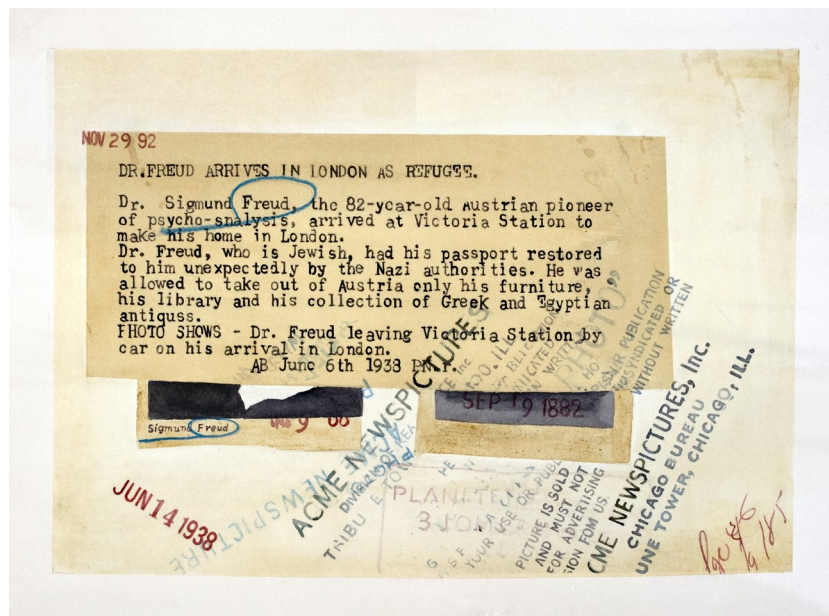 NOV 29 92
DR.FREUD ARRIVES IN LONDON AS REFUGEE.
Dr. Sigmund Freud, the 82-year-old Austrian pioneer
of psycho-snalysis, arrived at Victoria Station to
make his home in London.
Dr. Freud, who is Jewish, had his passport restored
to him unexpectedly by the Nazi authorities. He was
allowed to take out of Austria only his furniture,
his library and his collection of Greek and Egyptian
antiquss.
PHOTO SHOWS - Dr. Freud leaving Victoria Station by
car on his arrival in London.
AB June 6th 1938
Sigmund Freud
SEP 9 1882
JUN 14 1938
ACME NEWSPICTURES
NEWSPICTURE
PLANET
YOUR USE OR
PICTURE IS SOLD
AND MUST NOT
FOR ADVERTISING
SION FOM US.
PUBLICATION
SYNDICATED OR
WITHOUT WRITTEN
CME NEWSPICTURES, Inc.
CHICAGO BUREAU
UNE TOWER, CHICAGO, ILL.